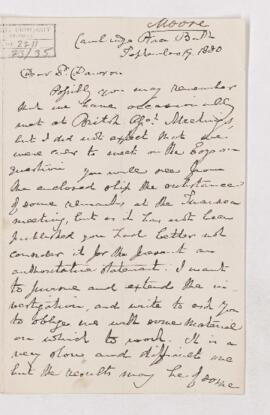 Moore
Cambridge Place Bath
September 19 1880
Dear Dr. Dawson
Possibly you may remember
that we have occasionally
met at British Assn. Meetings,
but I did not expect that we
were ever to meet on the Eozoon
question. You will see from
the enclosed slip the substance
of some remarks at the Swansea
meeting, but as it has not been
published you had better not
consider it for the present an
authoritative statement. I want
to pursue and extend the in
vestigation, and write to ask you
to oblige me with some material
on which to work. It is a
very slow and difficult one
but the results may be of some